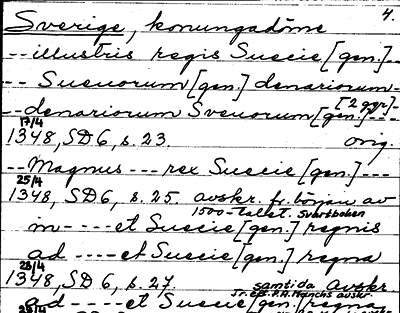 4.
Sverige, konungadöme
-- illustris regis Suecie [gen.] --
-- Sueuorum [gen.] denariorum -
-- denariorum Sveuorum [gen.] ---
[2 ggr]
17/4
1348, SD 6, s. 23. orig.
-- Magnus --- rex Suecie [gen.] ---
25/4
1348, SD 6, s. 25. avskr. fr. början av
1500-talet. Svartboken
in - - - - et Suecie [gen.] regnis
ad - - - - et Suecie [gen.] regna
28/4
1348, SD 6, s. 27. samtida avskr.
Jr. eft. P.A. Munchs avskr.
ad - - - - et Suecie [gen.] regna
28/4